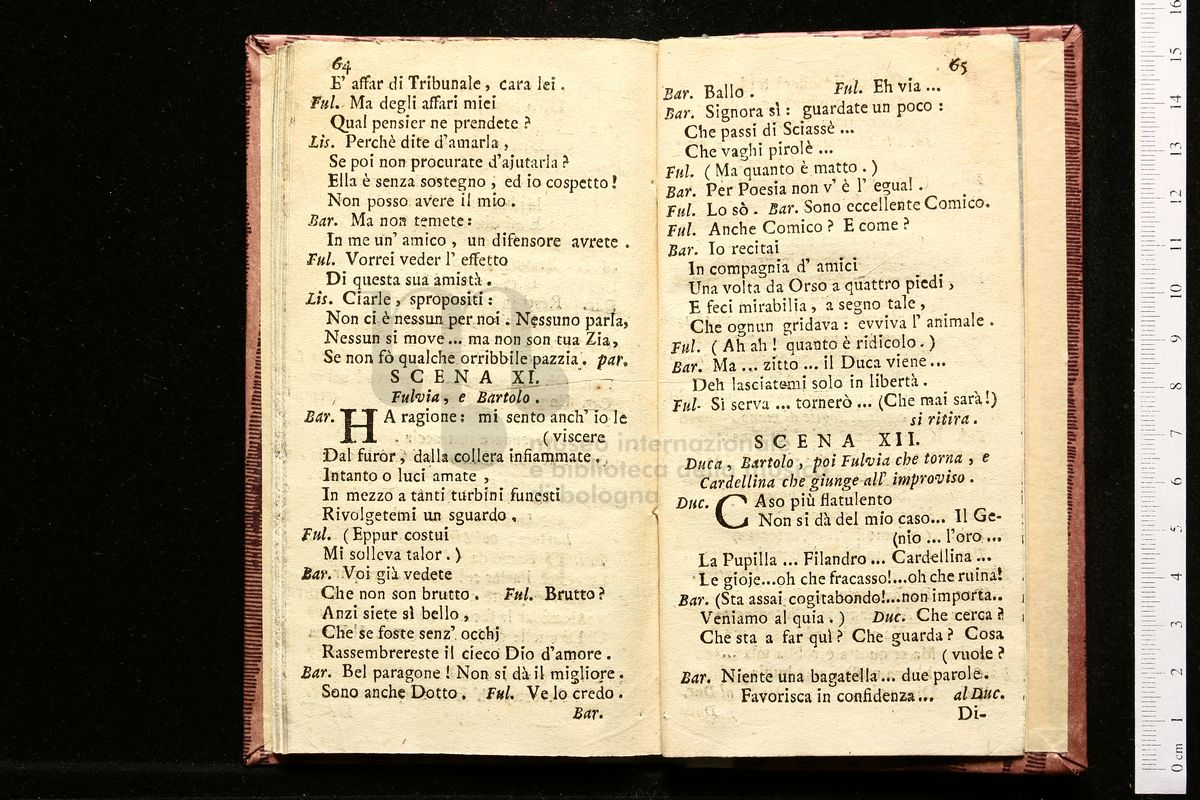 64
E' affar di Tribunale, cara lei.
Ful. Ma degli affari miei
Qual pensier ne prendete?
Lis. Perchè dite d'amarla,
Se poi non procurate d'ajutarla?
Ella è senza sostegno, ed io cospetto!
Non posso avere il mio.
Bar. Ma non temete:
In me un' amico, un difensore avrete.
Ful. Vorrei veder l' effetto
Di questa sua amistà.
Lis. Ciarle, spropositi:
Non ci è nessun per noi. Nessuno parla,
Nessun si move... ma non son tua Zia,
Se non fò qualche orribbile pazzia. par.
SCENA XI.
Fulvia, e Bartolo.
Bar. HA ragione: mi sento anch' io le
(viscere
Dal furor, dalla collera infiammate.
Intanto o luci amate,
In mezzo a tanti turbini funesti
Rivolgetemi un sguardo.
Ful. (Eppur costui
Mi solleva talor.)
Bar. Voi già vedete
Che non son brutto. Ful. Brutto?
Anzi siete sì bello,
Che se foste senz' occhj
Rassembrereste il cieco Dio d'amore.
Bar. Bel paragone! Non si dà il migliore.
Sono anche Dotto. Ful. Ve lo credo.
Bar.
65
Bar. Ballo. Ful. Eh via...
Bar. Signora sì: guardate un poco:
Che passi di Sciassè...
Che vaghi pirolè...
Ful. (Ma quanto è matto.)
Bar. Per Poesia non v' è l' egual.
Ful. Lo sò. Bar. Sono eccellente Comico.
Ful. Anche Comico? E come?
Bar. Io recitai
In compagnia d' amici
Una volta da Orso a quattro piedi,
E feci mirabilia, a segno tale,
Che ognun gridava: evviva l' animale.
Ful. (Ah ah! quanto è ridicolo.)
Bar. Ma... zitto... il Duca viene...
Deh lasciatemi solo in libertà.
Ful. Si serva... tornerò... (Che mai sarà!)
si ritira.
SCENA XII.
Duca, Bartolo, poi Fulvia che torna, e
Cardellina che giunge all' improviso.
Duc. CAso più flatulento
Non si dà del mio caso... Il Ge-
(nio... l'oro...
La Pupilla... Filandro... Cardellina...
Le gioje...oh che fracasso!...oh che ruina!
Bar. (Sta assai cogitabondo!...non importa..
Veniamo al quia.) Duc. Che cerca?
Che sta a far quì? Che guarda? Cosa
(vuole?
Bar. Niente una bagatella... due parole.
Favorisca in confidenza... al Duc.
Di-
museo internazionale
e biblioteca della musica
bologna
0 cm 1 2 3 4 5 6 7 8 9 10 11 12 13 14 15 16